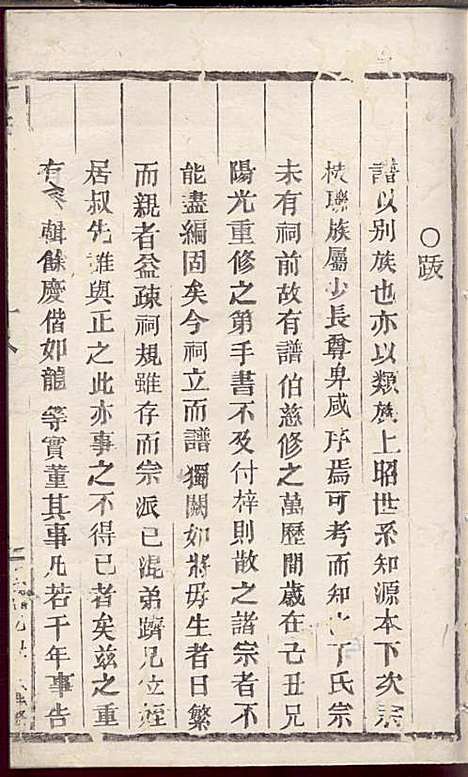 ○跋
譜以別族也亦以類族上昭世系知源本下次宗
枝聯族屬少長尊卑咸序焉可考而知也丁氏宗
未有祠前故有譜伯慈修之萬歷間歲在己丑兄
陽光重修之第手書不及付梓則散之諸宗者不
能盡編固矣今祠立而譜獨闕如將毋生者日繁
而親者益疎祠規雖存而宗派已混弟躋兄位姪
居叔先誰與正之此亦事之不得已者矣玆之重
有 輯餘慶偕如龍等實董其事凡若干年事告